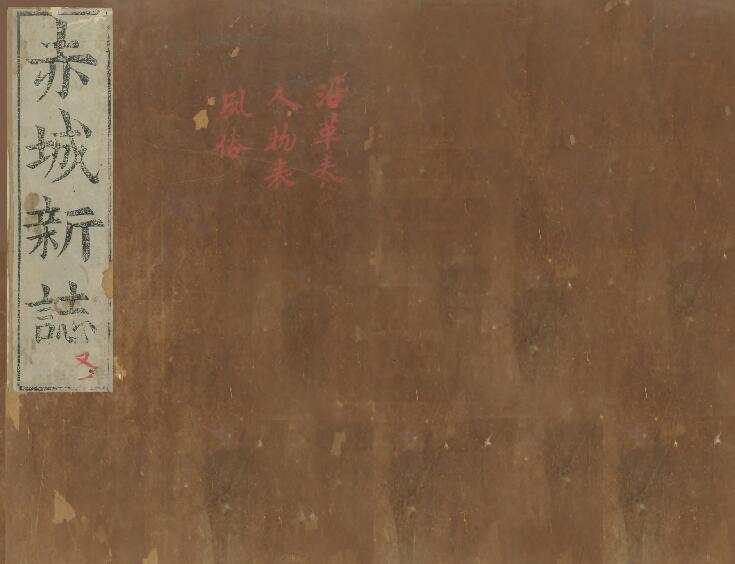 赤城新誌
又一
沿革表
人物表
風俗